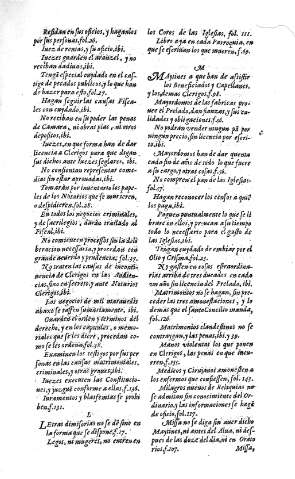 Residan en sus oficios, y haganlos
por sus personas, fol.26.
Iuez de remias, y su oficio, ibi.
Iuezes guarden el aranzel, y no
reciban dadiuas, ibi.
Tengã especial cuydado en el castigo
de pecados publicos, y lo que han
de hazer para esto. fol.27.
Hagan seguir las causas Fiscales
con cuydado, ibi.
No reciban en su poder las penas
de Camara, ni obras pias, ni otros
depositos, ibi.
Iuezes, en que forma han de dar
licencia a Clerigos para que digan
sus dichos ante Iuezes seglares, ibi.
No consientan representar comedias
sin estar aprouadas, ibi.
Tomaràn por inuentario los papeles
de los Notarios que se murieren,
o despidieren, fol.28.
En todos los negocios criminales,
y de sacrilegios, daràn traslado al
Fiscal, ibi.
No comiencen processos sin la deliberacion
necessaria, y procedan con
grande acuerdo y prudencia, fol.35.
Ni traten las causas de incontinencia
de Clerigos en las Audiencias,
sino en secreto, y ante Notarios
Clerigos, ibi.
Los negocios de mil marauedis
abaxo se passen sumariamente, ibi.
Guarden el orden y terminos del
derecho, y en los capitulos, o memoriales
que se les diere, procedan como
se les ordena, fol.
Examinen los testigos por sus personas
en las causas matrimoniales,
criminales, y otras graues, ibi.
Iuezes executen las Constituciones,
y juzguen conforme a ellas, f.156.
Iuramentos y blasfemias se prohiben,
f.151.
L
LEtras dimissorias no se dẽ sino en
la forma que se dispone, f.17.
Legos, ni mugeres, no entren en
los Coros de las Iglesias, fol. 111.
Libro aya en cada Parroquia, en
que se escriuan los que mueren, f.89.
M
MAytines a que han de assistir
los Beneficiados y Capellanes,
y los demas Clerigos, f.98.
Mayordomos de las fabricas propone
el Prelado, dan fianças, y sus calidades
y obligaciones. f.46.
No podran vender ningun pã por
ningun precio, sin licencia por escrito,
ibi.
Mayordomos han de dar quenta
cada fin de año de todo lo que fuere
a su cargo, y otras cosas, f.
No compren el pan de las Iglesias,
fol.
Hagan reconocer los censos a quien
los paga, ibi.
Paguen puntualmente lo que se libra
en ellos, y prouean con tiempo
todo lo necessario para el gasto de
las Iglesias, ibi.
Tengan cuydado de embiar por el
Olio y Crisma, fol.
Ni gasten en cosas extraordinarias
arriba de tres ducados en cada
un año sin licencia del Prelado, ibi.
Matrimonios no se hagan, sin preceder
las tres amonestaciones, y lo
demas que el santo Concilio manda,
fol.126
Matrimonios clandestinos no se
contraygan, y las penas, ibi, y 59.
Manos violentas los que ponen
en Clerigos, las penas en que incurren,
f.155.
Medicos y Cirujanos amonesten a
los enfermos que confiessen, fol. 145.
Milagros nueuos de Reliquias no
se admitan sin conocimiento del Ordinario,
y las informaciones se hagã
de oficio, fol.127.
Missa no se diga sin auer dicho
Maytines, ni antes del Alua, ni despues
de las doze del dia, ni en Oratorios,
f.107.
Missa,